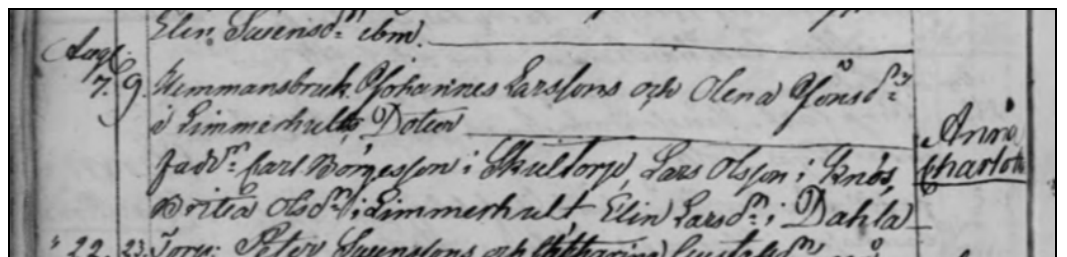 Elin Svensdr ibm.
Aug.
7. 9. Hemmansbruk. Johannes Larssons och Olena Jönsdr
i Limmerhults Dotter
Anna Charlotta
fadr Carl Börgesson i Skultorp, Lars Olsson i Knös,
Britta Olsdr i Limmerhult Elin Larsdr i Dahla
" 22. 23. Torp: Peter Svenssons och Catharina Gustafsdr